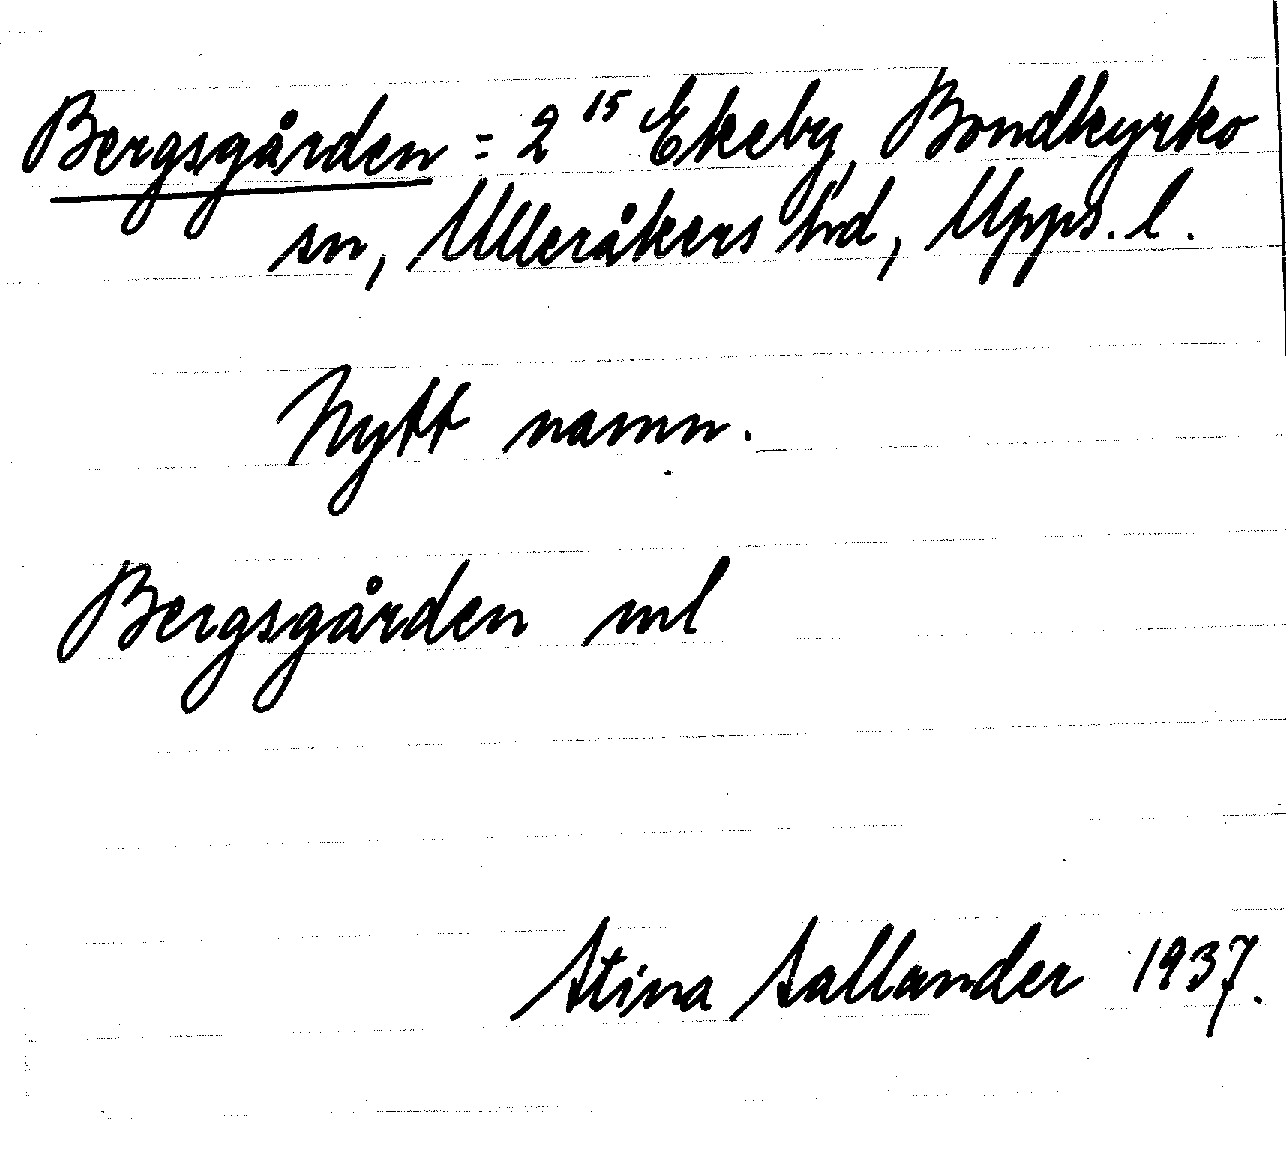 Bergsgården = 2¹⁵ Ekeby, Bondkyrko
sn, Ulleråkers hd, Upps. l.
Nytt namn.
Bergsgården ml
Stina Sallander 1937.